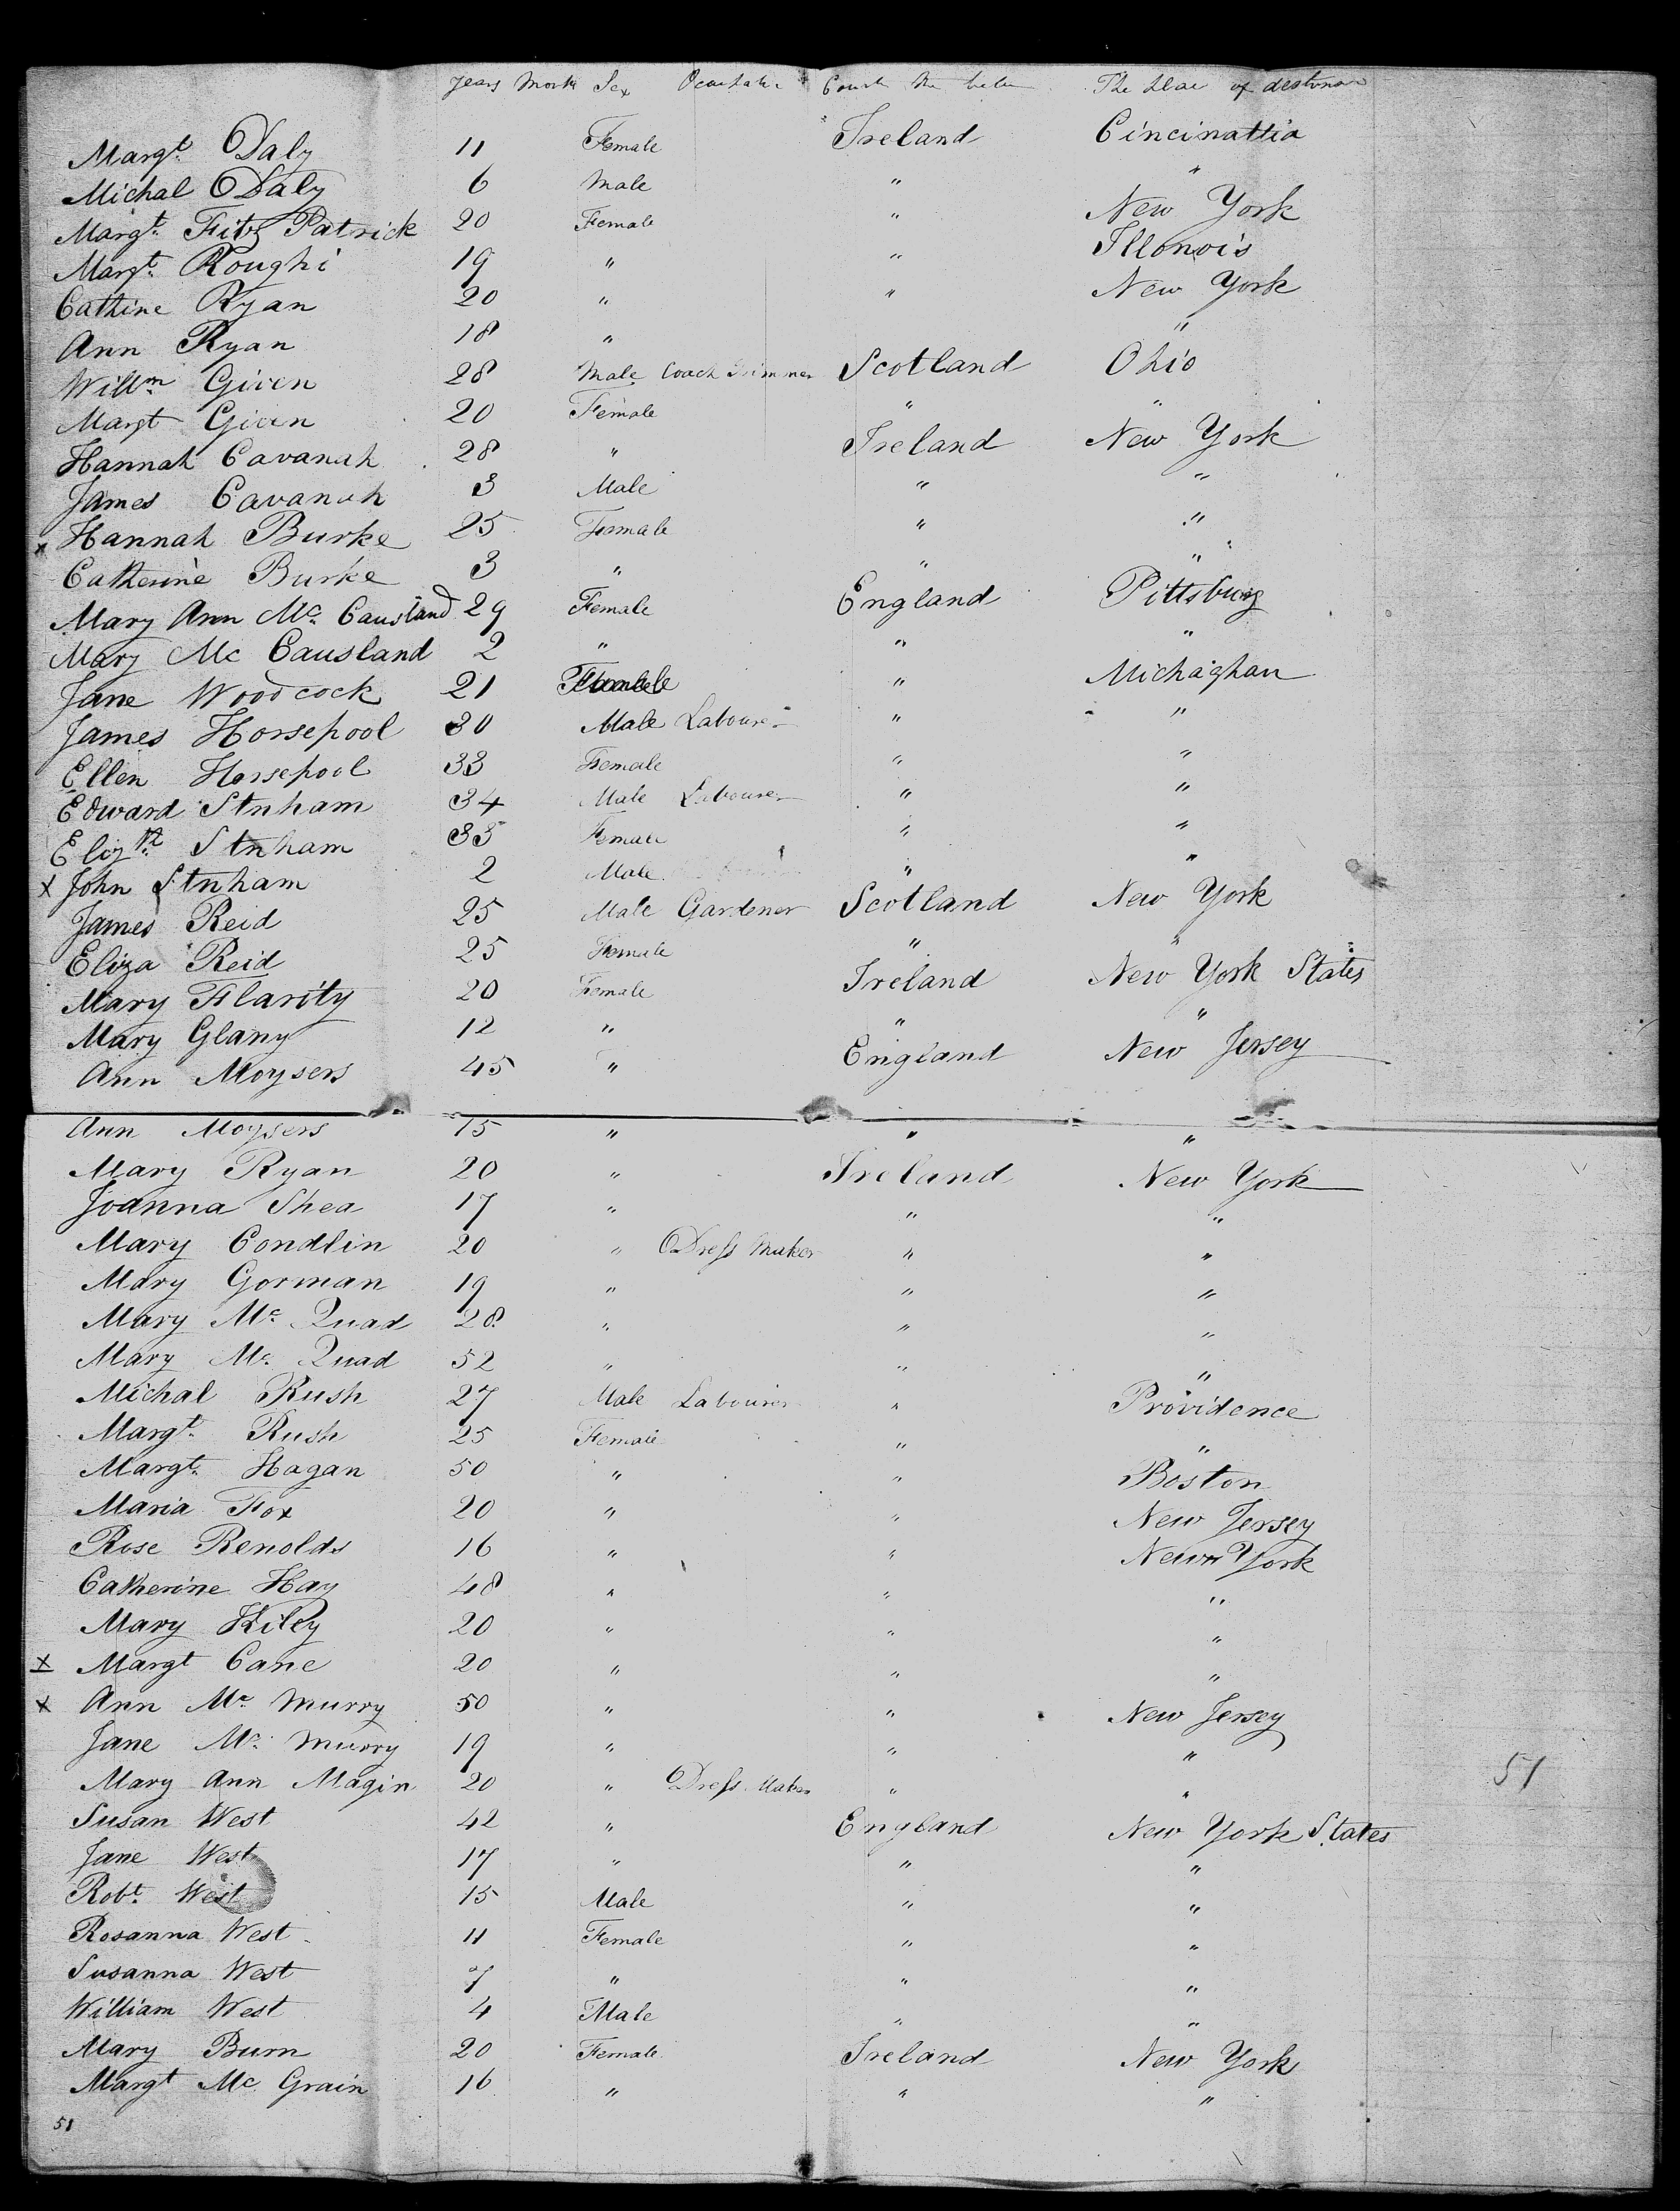 years Month Sex Ocupation Count The of destination
Margt. Daly 11 Female Ireland Cincinattia
Michal Daly 6 Male " "
Margt. Fitz Patrick 20 Female " New York
Margt. Roughi 19 " " Illonois
Cathine Ryan 20 " " New York
Ann Ryan 18 " "
Willm Given 28 Male Coach Trimmer Scotland Ohio
Margt Given 20 Female " "
Hannah Cavanah 28 " Ireland New York
James Cavanah 3 Male " "
x Hannah Burke 25 Female " "
Catherine Burke 3 " " "
Mary Ann Mc. Causland 29 Female England Pittsburg
Mary Mc Causland 2 " " "
Jane Woodcock 21 Female " Michaghan
James Horsepool 30 Male Labourer " "
Ellen Horsepool 33 Female " "
Edward Stnham 34 Male Labourer " "
Elizth. Stnham 33 Female " "
x John Stnham 2 Male " "
James Reid 25 Male Gardener Scotland New York
Eliza Reid 25 Female " "
Mary Flarity 20 Female Ireland New York States
Mary Glany 12 " " "
Ann Moysers 45 " England New Jersey
Ann Moysers 15 " " "
Mary Ryan 20 " Ireland New York
Joanna Shea 17 " " "
Mary Condlin 20 " Dress Maker " "
Mary Gorman 19 " " "
Mary Mc. Quad 28 " " "
Mary Mc. Quad 52 " " "
Michal Rush 27 Male Labourer " Providence
Margt. Rush 25 Female " "
Margt. Hagan 50 " " Boston
Maria Fox 20 " " New Jersey
Rose Renolds 16 " " New York
Catherine Hay 48 " " "
Mary Kiley 20 " " "
x Margt Cane 20 " " "
x Ann Mc. Murry 50 " " New Jersey
Jane Mc. Murry 19 " " "
Mary Ann Magin 20 " Dress Maker " "
51
Susan West 42 " England New York States
Jane West 17 " " "
Robt. West 15 Male " "
Rosanna West 11 Female " "
Susanna West 7 " " "
William West 4 Male " "
Mary Burn 20 Female Ireland New York
Margt Mc Grain 16 " " "
51